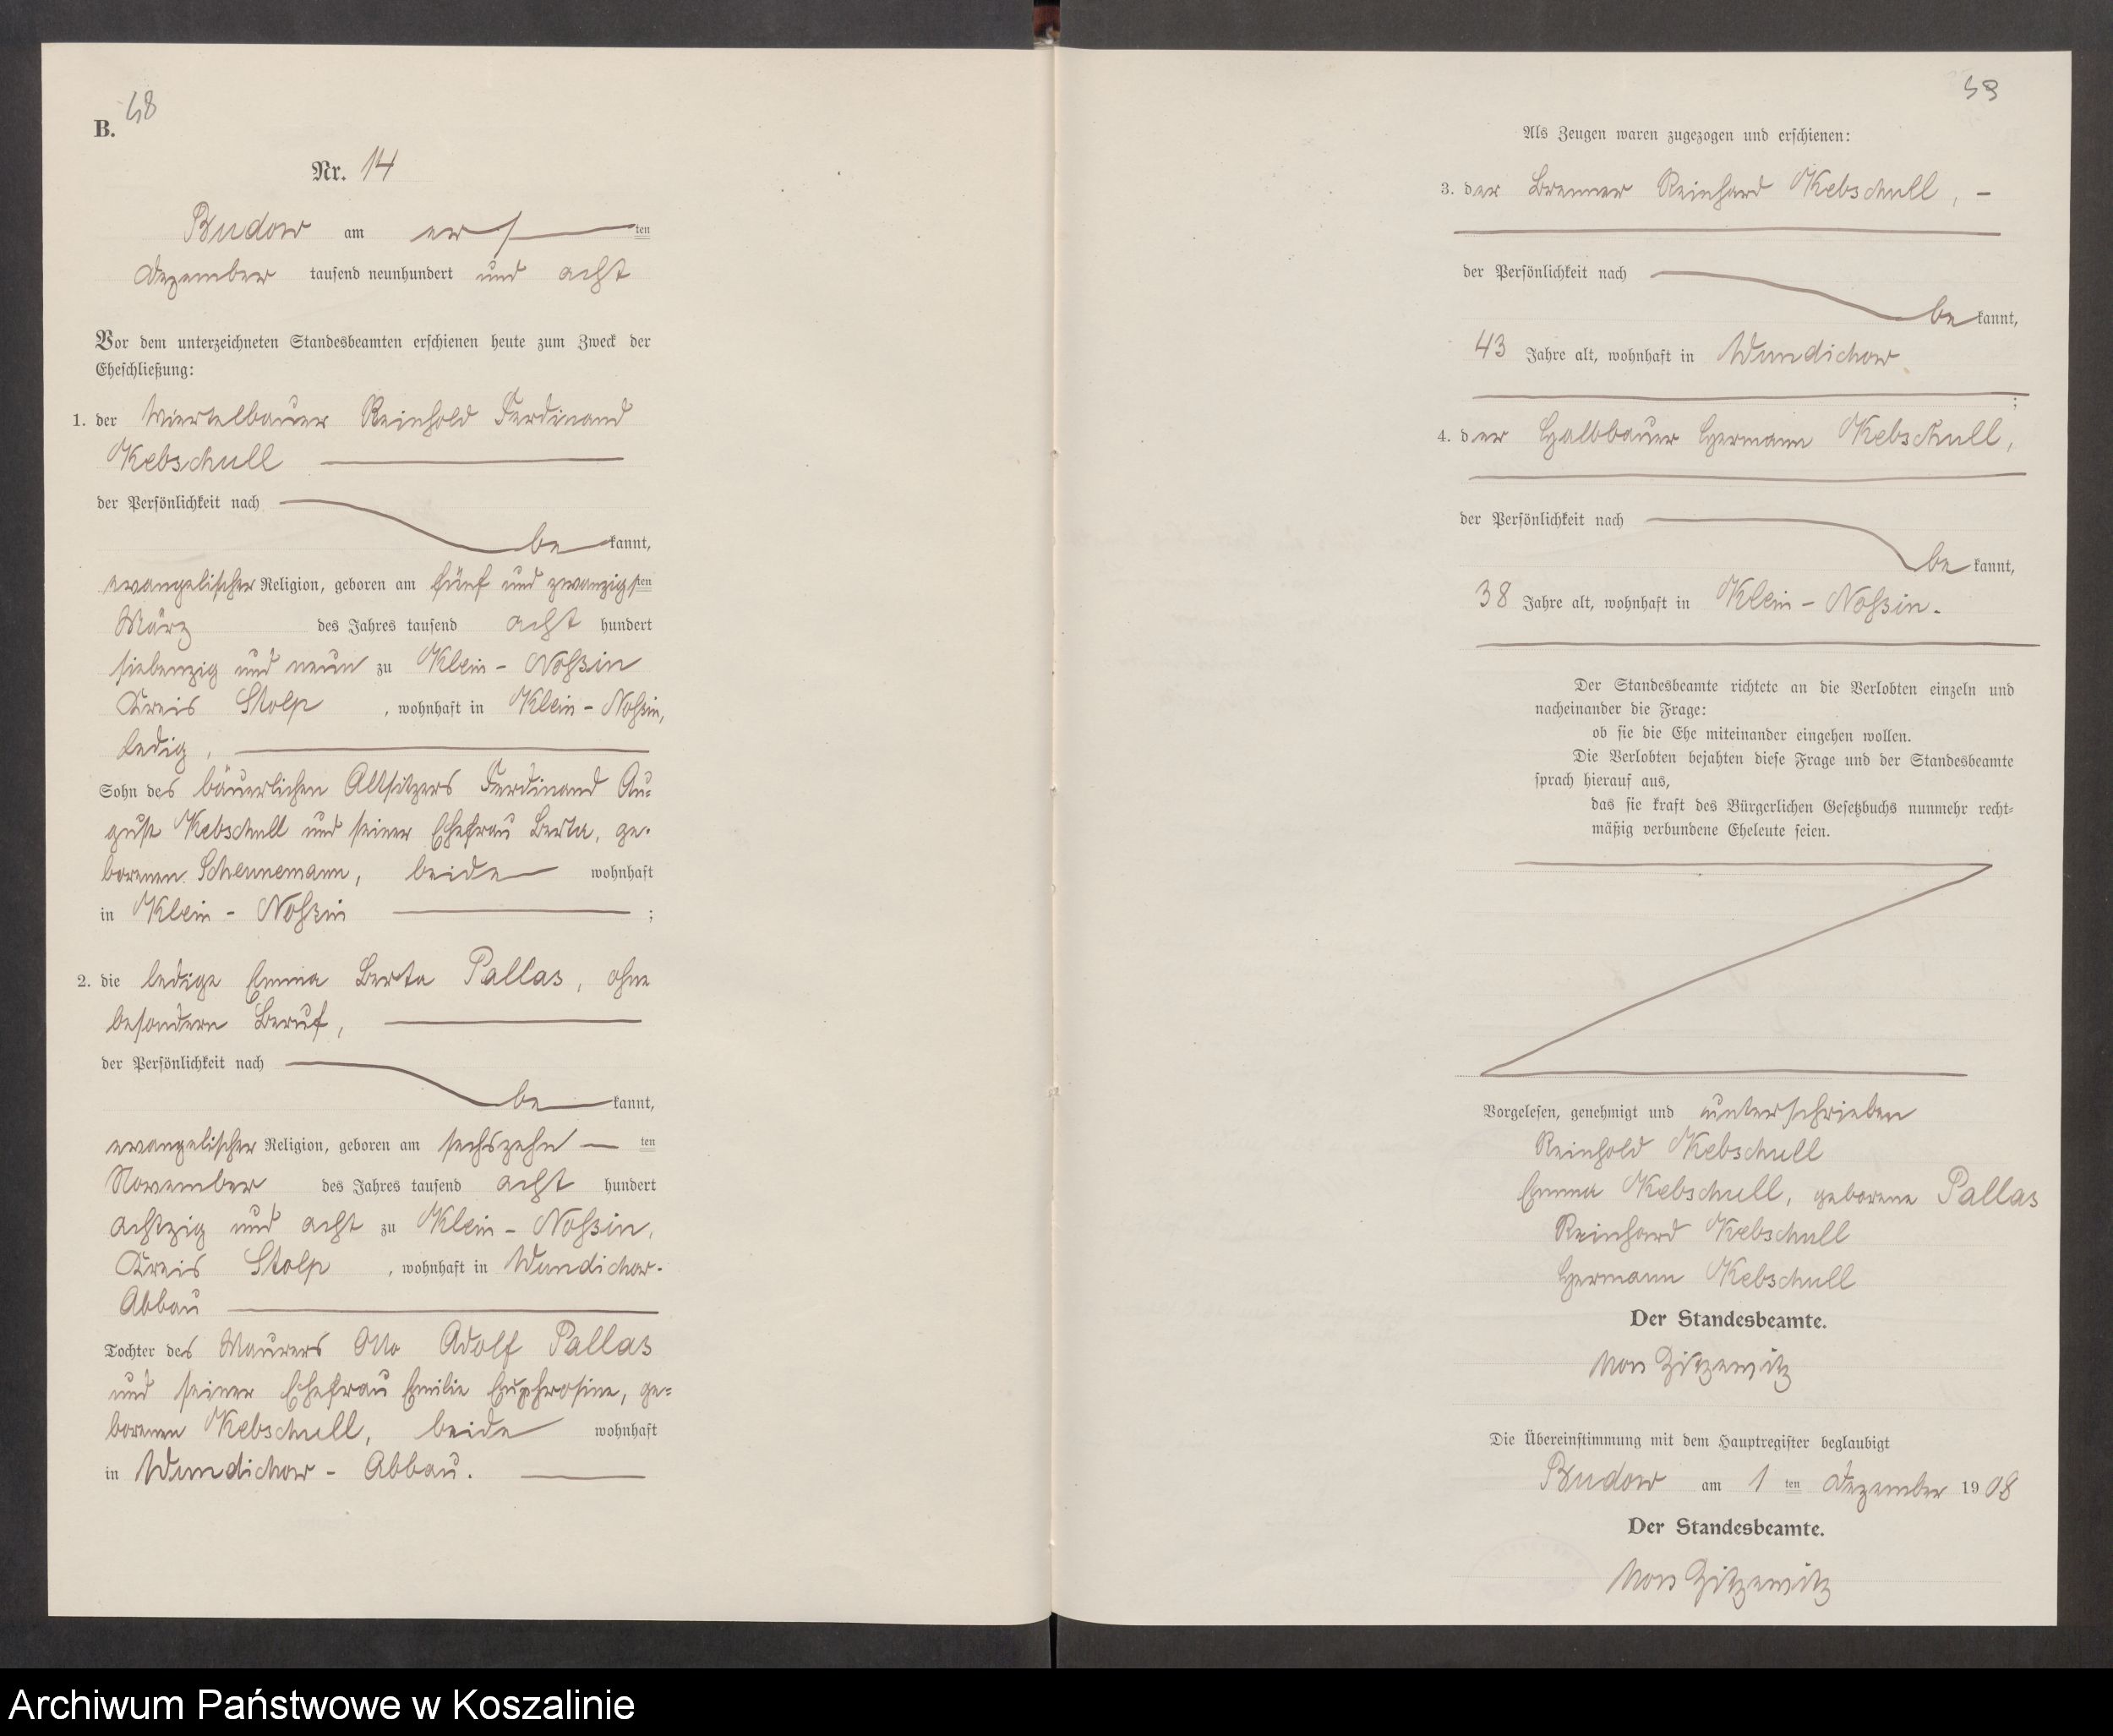 48
B.
Nr. 14
Budow am ersten
Dezember tausend neunhundert und acht
Vor dem unterzeichneten Standesbeamten erschienen heute zum Zweck der
Eheschließung:
1. der Viertelbauer Reinhold Ferdinand
Kebschull
der Persönlichkeit nach
be kannt,
evangelischer Religion, geboren am fünf und zwanzigsten
März des Jahres tausend acht hundert
siebenzig und neun zu Klein-Nossin
Kreis Stolp, wohnhaft in Klein-Nossin,
ledig,
Sohn des bäuerlichen Altsitzers Ferdinand Au=
gust Kebschull und seiner Ehefrau Berta, ge=
borenen Schennemann, beide wohnhaft
in Klein-Nossin ;
2. die ledige Emma Berta Pallas, ohne
besondern Beruf,
der Persönlichkeit nach
be kannt,
evangelischer Religion, geboren am sechszehn ten
November des Jahres tausend acht hundert
achtzig und acht zu Klein-Nossin,
Kreis Stolp, wohnhaft in Wundichow-
Abbau
Tochter des Maurers Otto Adolf Pallas
und seiner Ehefrau Emilie Euphrosine, ge=
borenen Kebschull, beide wohnhaft
in Wundichow-Abbau.
Als Zeugen waren zugezogen und erschienen:
3. der Brenner Reinhard Kebschull, -
der Persönlichkeit nach
be kannt,
43 Jahre alt, wohnhaft in Wundichow
;
4. der Halbbauer Hermann Kebschull,
der Persönlichkeit nach
be kannt,
38 Jahre alt, wohnhaft in Klein-Nossin.
Der Standesbeamte richtete an die Verlobten einzeln und
nacheinander die Frage:
ob sie die Ehe miteinander eingehen wollen.
Die Verlobten bejahten diese Frage und der Standesbeamte
sprach hierauf aus,
das sie kraft des Bürgerlichen Gesetzbuchs nunmehr recht=
mäßig verbundene Eheleute seien.
Vorgelesen, genehmigt und unterschrieben
Reinhold Kebschull
Emma Kebschull, geborene Pallas
Reinhard Kebschull
Hermann Kebschull
Der Standesbeamte.
von Zitzewitz
Die Übereinstimmung mit dem Hauptregister beglaubigt
Budow am 1 ten Dezember 1908
Der Standesbeamte.
von Zitzewitz
Archiwum Państwowe w Koszalinie